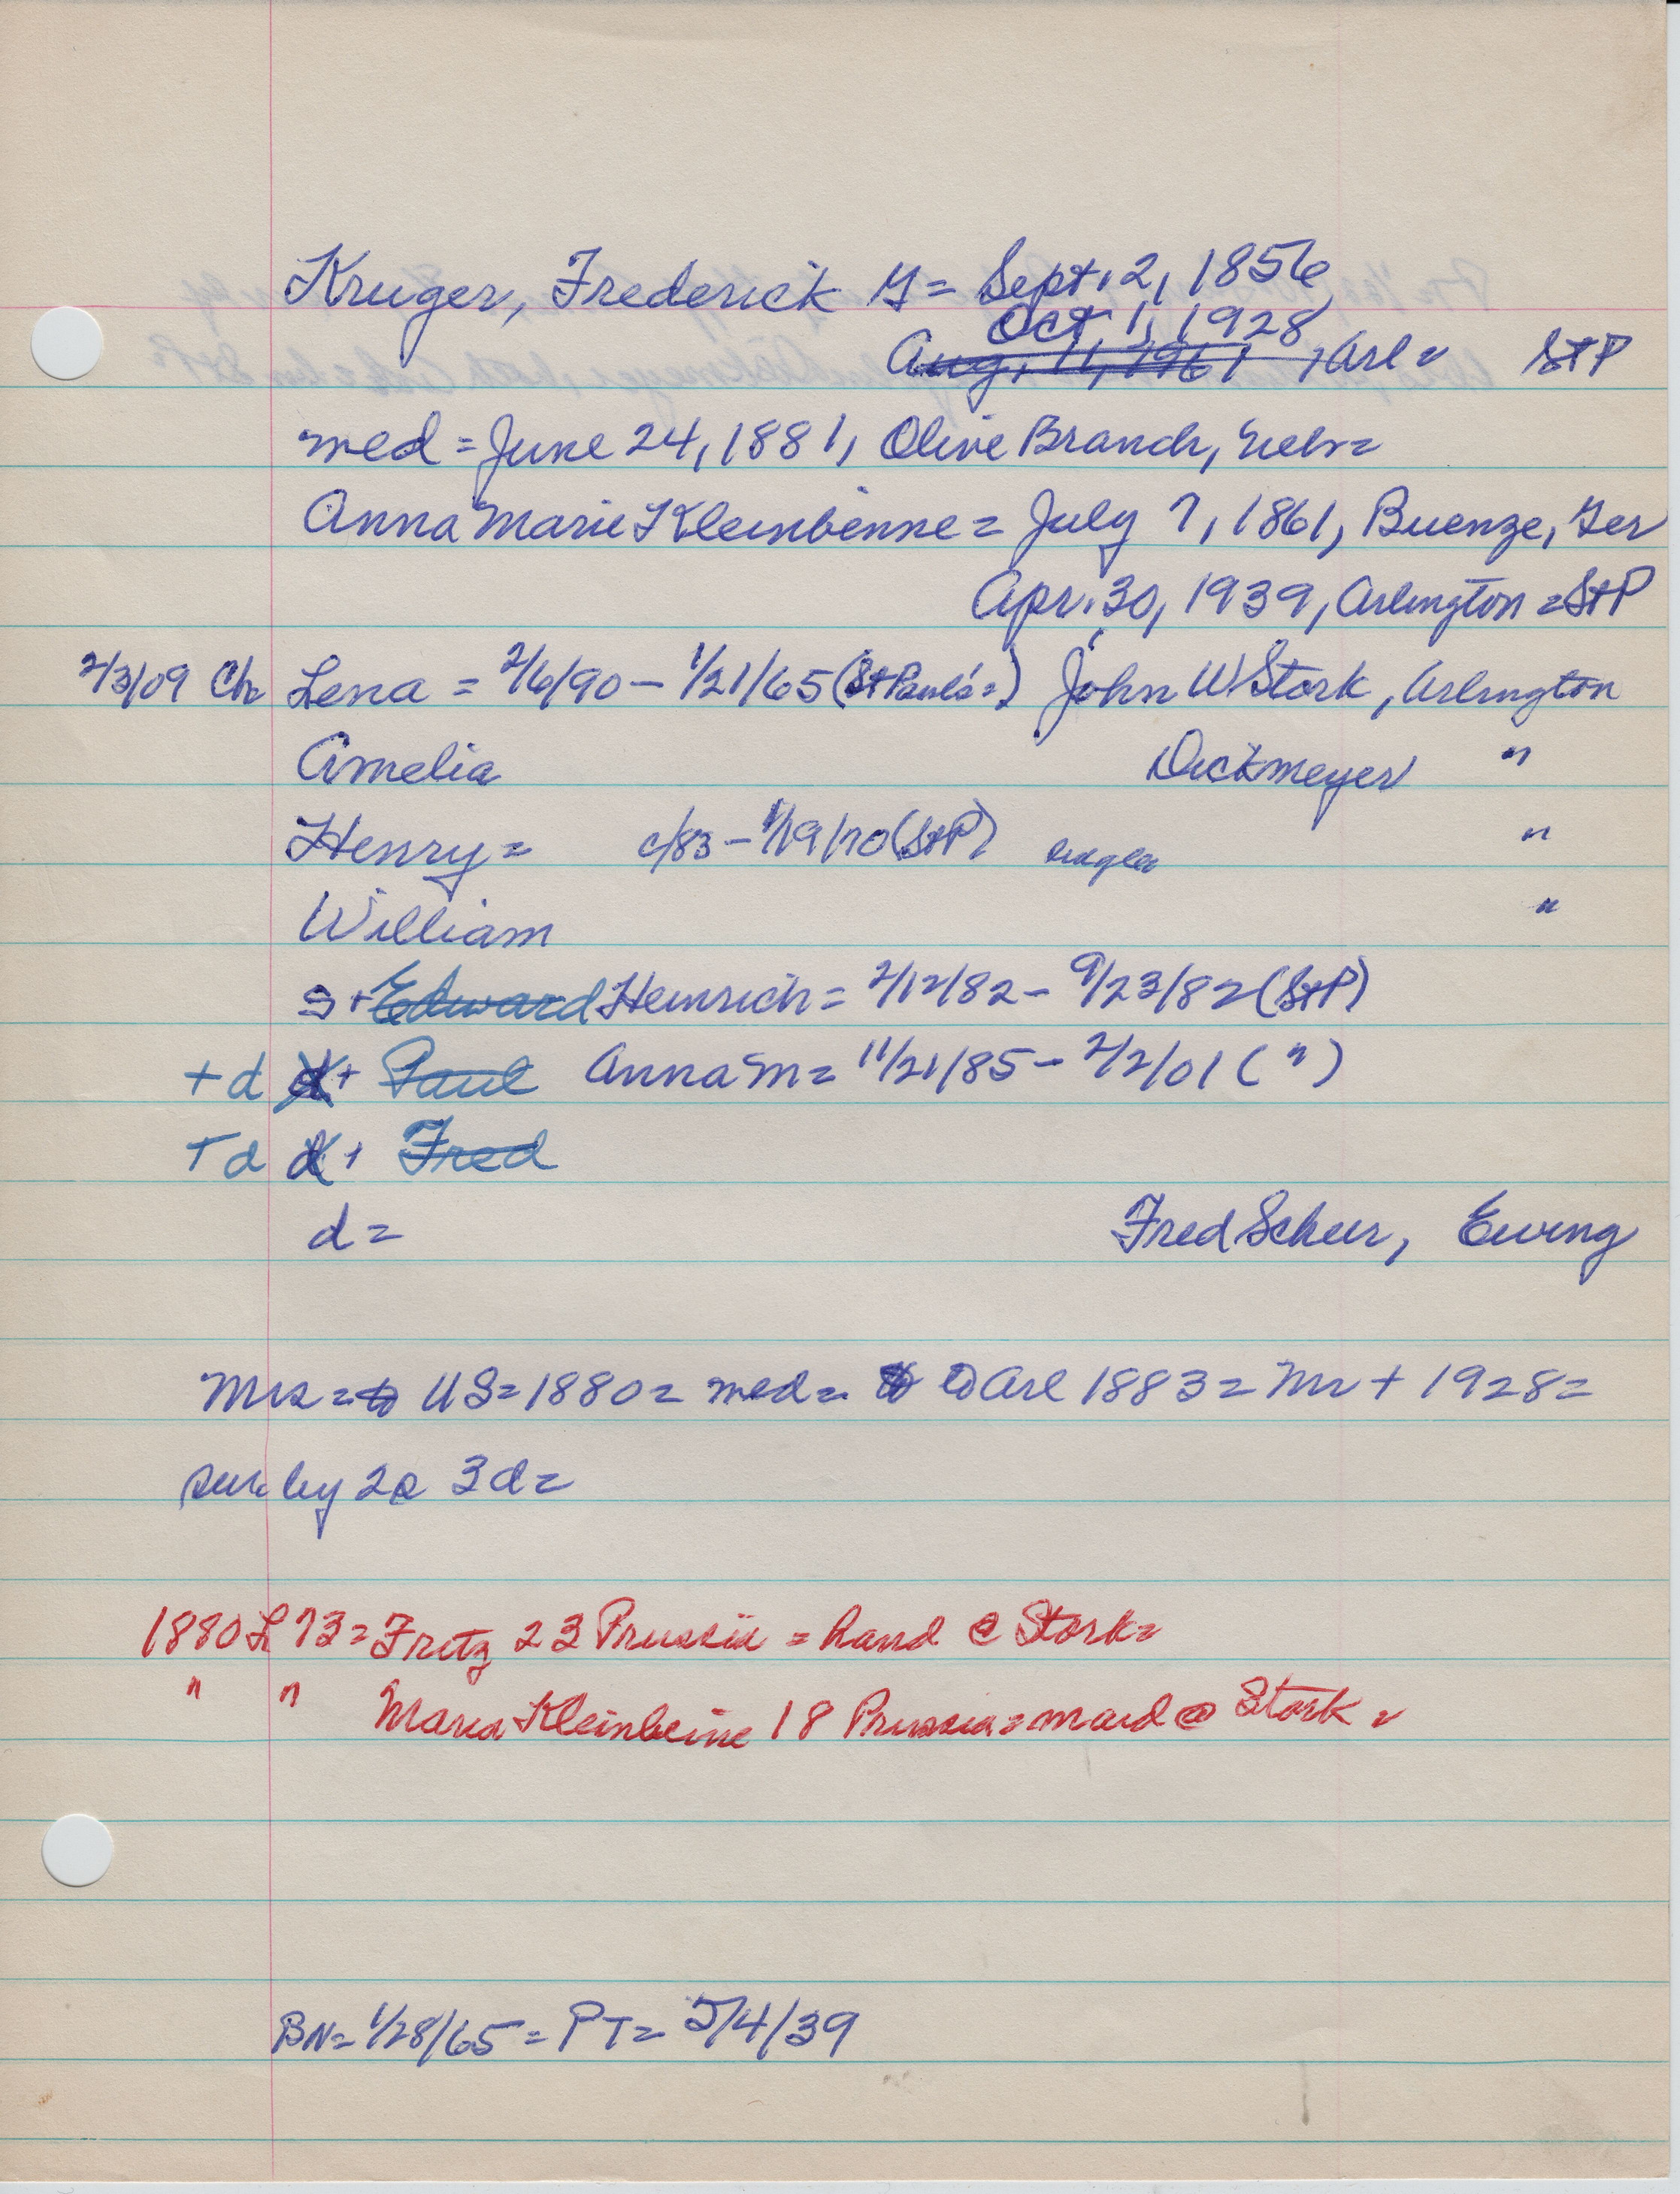 Kruger, Frederick G= Sept. 2, 1856
Oct. 1, 1928
Aug. 11, 1961, Arl= St P
med = June 24, 1881, Olive Branch, Nebr=
Anna Marie Kleinbenne = July 7, 1861, Buenze, Ger
Apr. 30, 1939, Arlington = St P
2/3/09 Ch Lena = 2/6/90 - 1/21/65 (St Paul's=) John W Stork, Arlington
Amelia Dickmeyer "
Henry = c/83 - 1/19/70 (St P) single "
William "
s + Edward Heinrich = 2/12/82 - 9/23/82 (St P)
+ d d+ Paul Anna M = 11/21/85 - 2/2/01 (")
+ d d+ Fred
d = Fred Scheer, Ewing
Mrs = to US = 1880 = med = to Arl 1883 = Mr + 1928 =
sur by 2s 3d =
1880 L 73 = Fritz 23 Prussia = hand @ Stork =
" " Maria Kleinbeine 18 Prussia = maid @ Stork =
BN = 1/28/65 = PT = 5/4/39